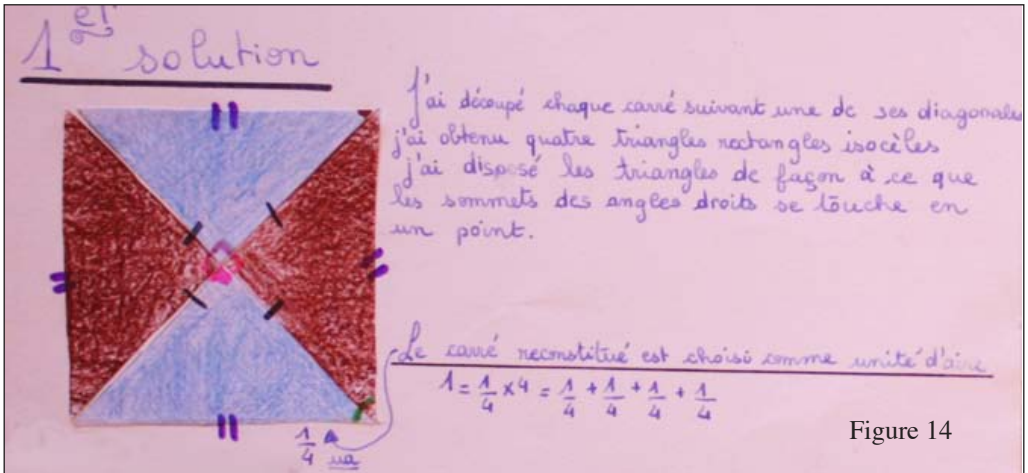 1er solution
J'ai découpé chaque carré suivant une de ses diagonales
j'ai obtenu quatre triangles rectangles isocèles
j'ai disposé les triangles de façon à ce que
les sommets des angles droits se touche en
un point.
Le carré reconstitué est choisi comme unité d'aire
1 = 1/4 × 4 = 1/4 + 1/4 + 1/4 + 1/4
1/4 ua
Figure 14